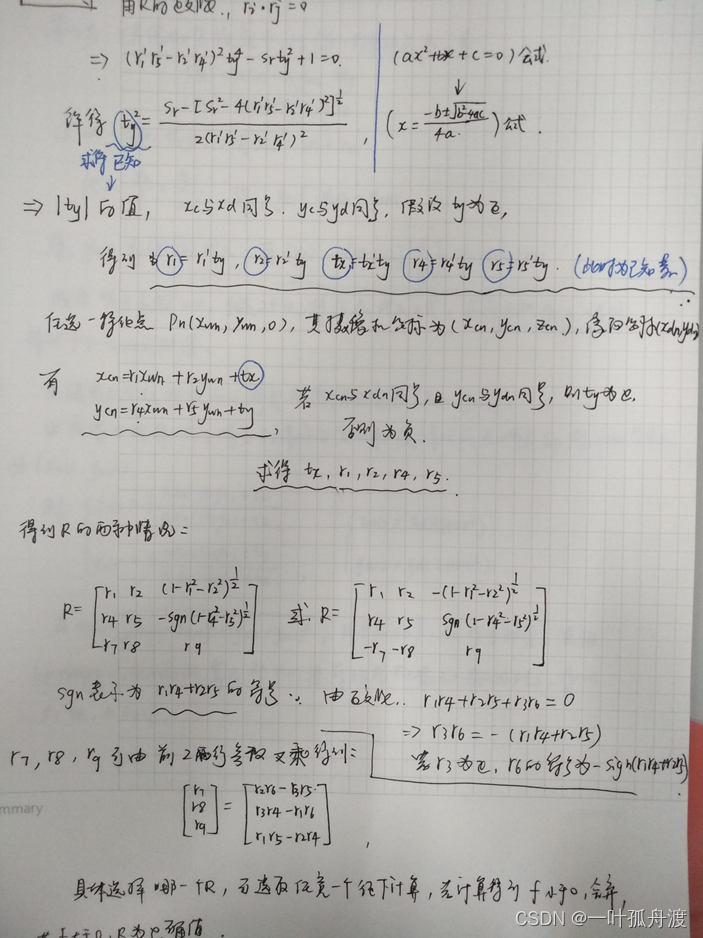 用R的正交性, ri·rj=0
⇒ (r1'r5'-r2'r4')²ty⁴-Srty²+1=0. (ax²+bx+c=0)公式.
解得 ty²= (Sr-[Sr²-4(r1'r5'-r2'r4')²]^½)/(2(r1'r5'-r2'r4')²), (x=(-b±√(b²-4ac))/(4a.))公式.
求得已知
⇒ |ty|的值, xc与xd同号. yc与yd同号, 假设ty为正,
得到 r1=r1'ty, r2=r2'ty tx=tx'ty r4=r4'ty r5=r5'ty. (此时为已知量)
任选一特征点 Pn(xwn, ywn, 0), 其摄像机坐标为(xcn, ycn, zcn), 像面坐标(xdn, ydn)
有 xcn=r1xwn+r2ywn+tx
ycn=r4xwn+r5ywn+ty, 若xcn与xdn同号,且ycn与ydn同号,则ty为正.
否则为负.
求得 tx, r1, r2, r4, r5.
得到R的两种情况:
R= [r1 r2 (1-r1²-r2²)^½ 或 R= [r1 r2 -(1-r1²-r2²)^½
r4 r5 -sgn(1-r4²-r5²)^½ r4 r5 sgn(1-r4²-r5²)^½
r7 r8 r9] -r7 -r8 r9]
sgn表示为 r1r4+r2r5的符号 ∵ 由正交性.. r1r4+r2r5+r3r6=0
⇒ r3r6=-(r1r4+r2r5)
r7, r8, r9可由前2两行参数叉乘得到: 若r3为正, r6的符号为-sign(r1r4+r2r5)
[r7 [r2r6-r3r5
r8 = r3r4-r1r6
r9] r1r5-r2r4],
mmary
具体选择哪一个R, 可选取任意一个往下计算, 若计算得到f小于0,舍弃,
若f大于0, R为正确值.
CSDN @一叶孤舟渡